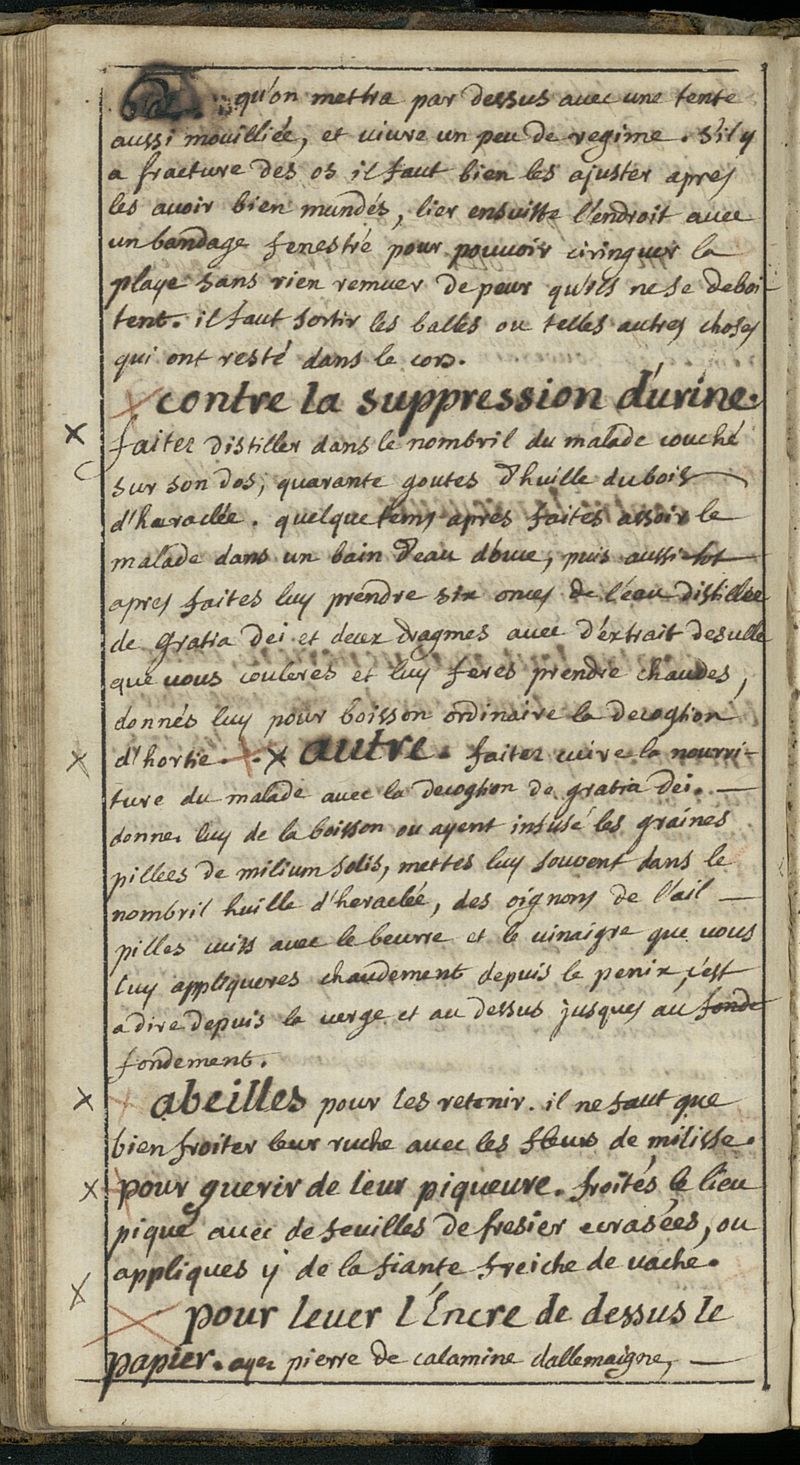 qu'on mettra par dessus avec une tente
aussi mouilliée, et vivre un peu de regime. S'il y
a fracture des os il faut bien les ajuster apres
les avoir bien mundés, lier ensuitte l'endroit avec
un bandage fenestré pour pouvoir ciringuer la
playe sans rien remuer de peur qu'ils ne se deboi-
tent. il faut sortir les balles ou telles autres choses
qui ont resté dans le cors.
contre la suppression d'urine.
faites distiller dans le nombril du malade couché
sur son dos, quarante goutes d'huille du bois
d'haraclée. quelque tems apres faites assoir le
malade dans un bain d'eau douce, puis aussi tot
apres faites luy prendre six onces de l'eau distillée
de gratia Dei et deux dragmes avec d'extrait
que vous couleres et luy feres prendre chaudes,
donnés luy pour boisson ordinaire la decoghon
d'hortie. autre. faites cuire la nourri-
ture du malade avec la decoghon de gratia dei.
donnez luy de la boisson ou ayent infusé les graines
pillées de milium solis, mettes luy souvent dans le
nombril huille d'heraclée, des oignons de l'ail
pilles cuits avec le beurre et le vinaigre que vous
luy appliqueres chaudement depuis le penix, c'est
a dire depuis la verge et au dessus jusques au fonde
fondement.
abeilles pour les retenir. il ne faut que
bien froiter leur ruche avec les fleurs de milisse.
pour guerir de leur piqueure. froités le lieu
piqué avec de feuilles de fresier ecrasées, ou
appliques y de la fiante freiche de vache.
pour lever l'Encre de dessus le
papier. ayez pierre de calamine dallemaigne,